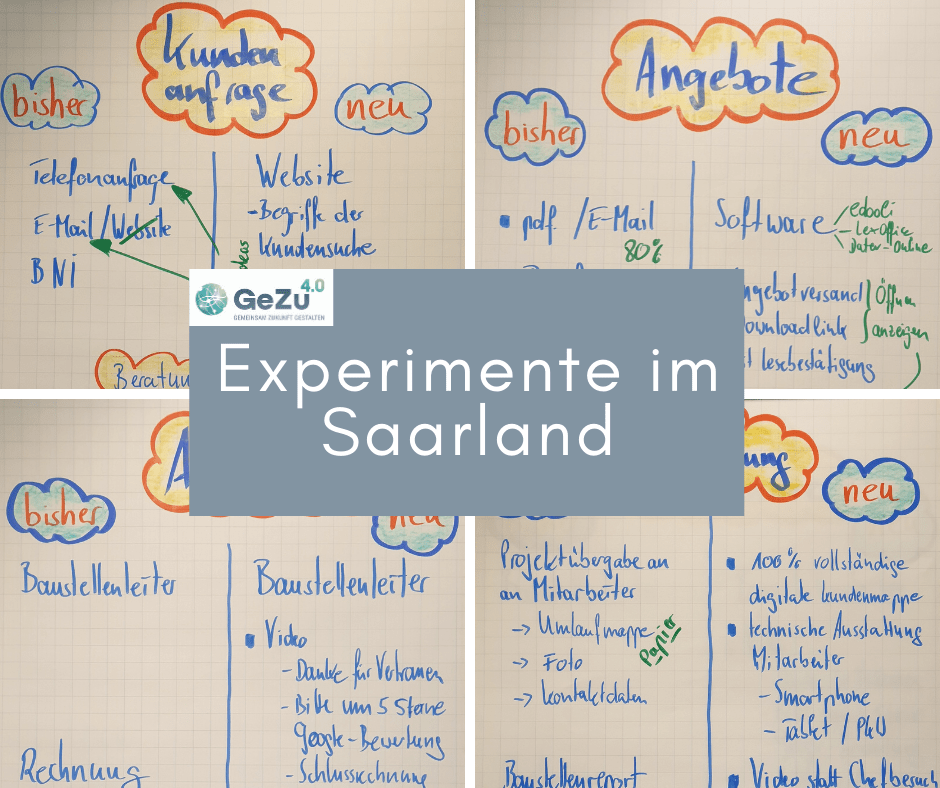 Kunden
anfrage
bisher
neu
Telefonanfrage
E-Mail/Website
BNI
Website
-Begriffe der
Kundensuche
Angebote
bisher
neu
pdf /E-Mail
80%
Software
edooli
- LexOffice
Datev-Online
Angebotversand
Downloadlink
lesebestätigung
Öffnen
anzeigen
GeZu 4.0
GEMEINSAM ZUKUNFT GESTALTEN
Experimente im
Saarland
bisher
neu
Baustellenleiter
Rechnung
Baustellenleiter
Video
- Danke für Vertrauen
- Bitte um 5 Sterne
Google-Bewertung
- Schlussrechnung
ung
neu
Projektübergabe an
an Mitarbeiter
-> Umlaufmappe
Papier
-> Foto
-> Kontaktdaten
Baustellenreport
100% vollständige
digitale Kundenmappe
technische Ausstattung
Mitarbeiter
- Smartphone
- Tablet / PKW
Video statt Chefbesuch